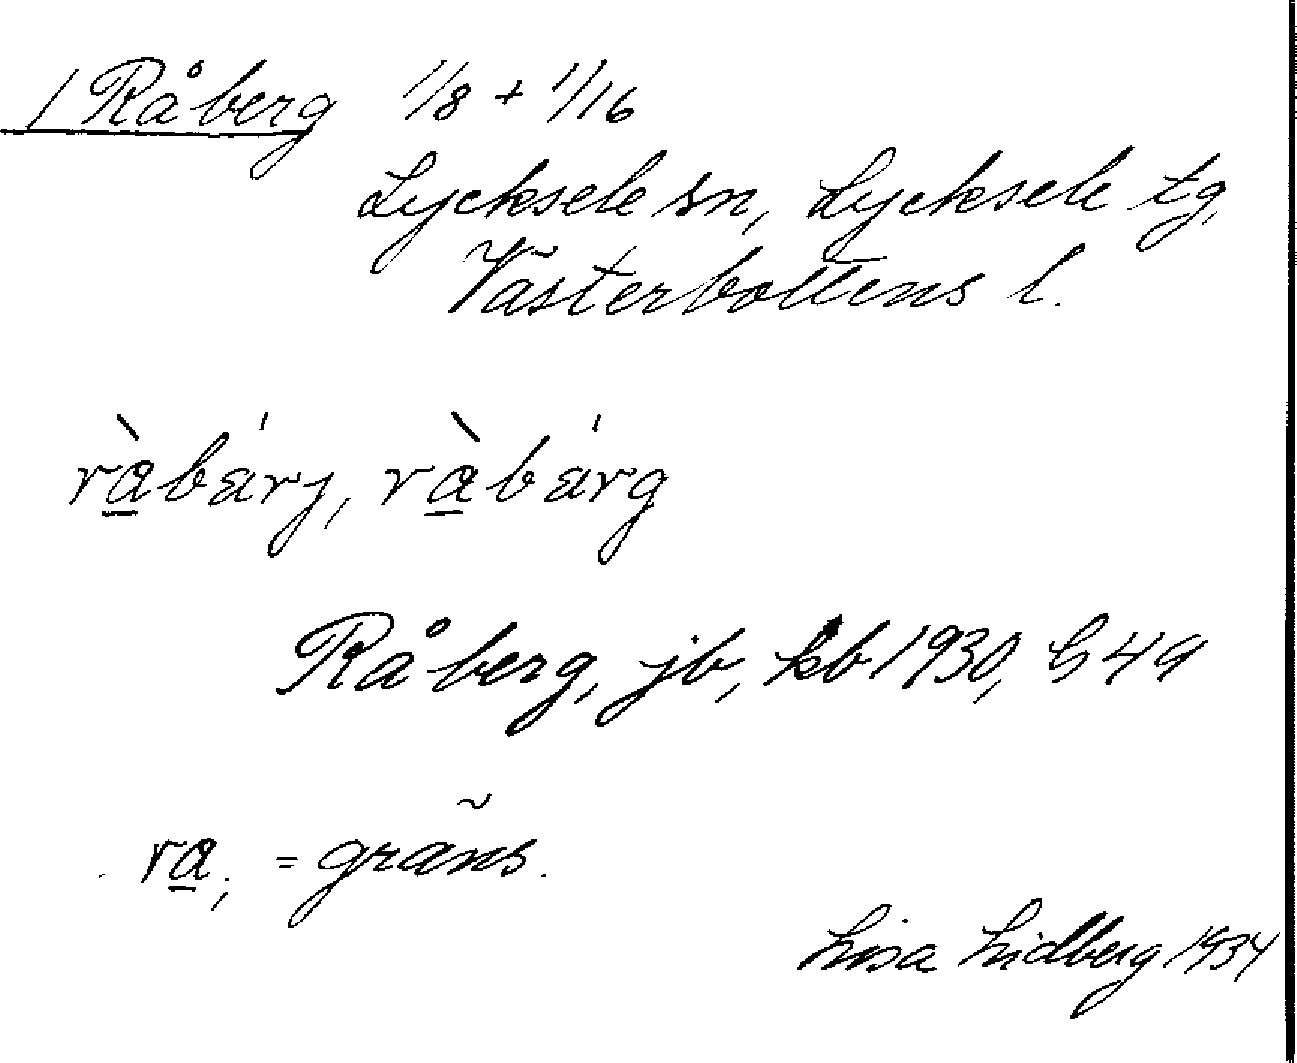 1 Råberg 1/8 + 1/16
Lycksele sn, Lycksele tg,
Västerbottens l.
rà̱bárj, rà̱bárg
Råberg, jb, kb 1930, G 49
ra̱; = gräns.
Lisa Lidberg 1934